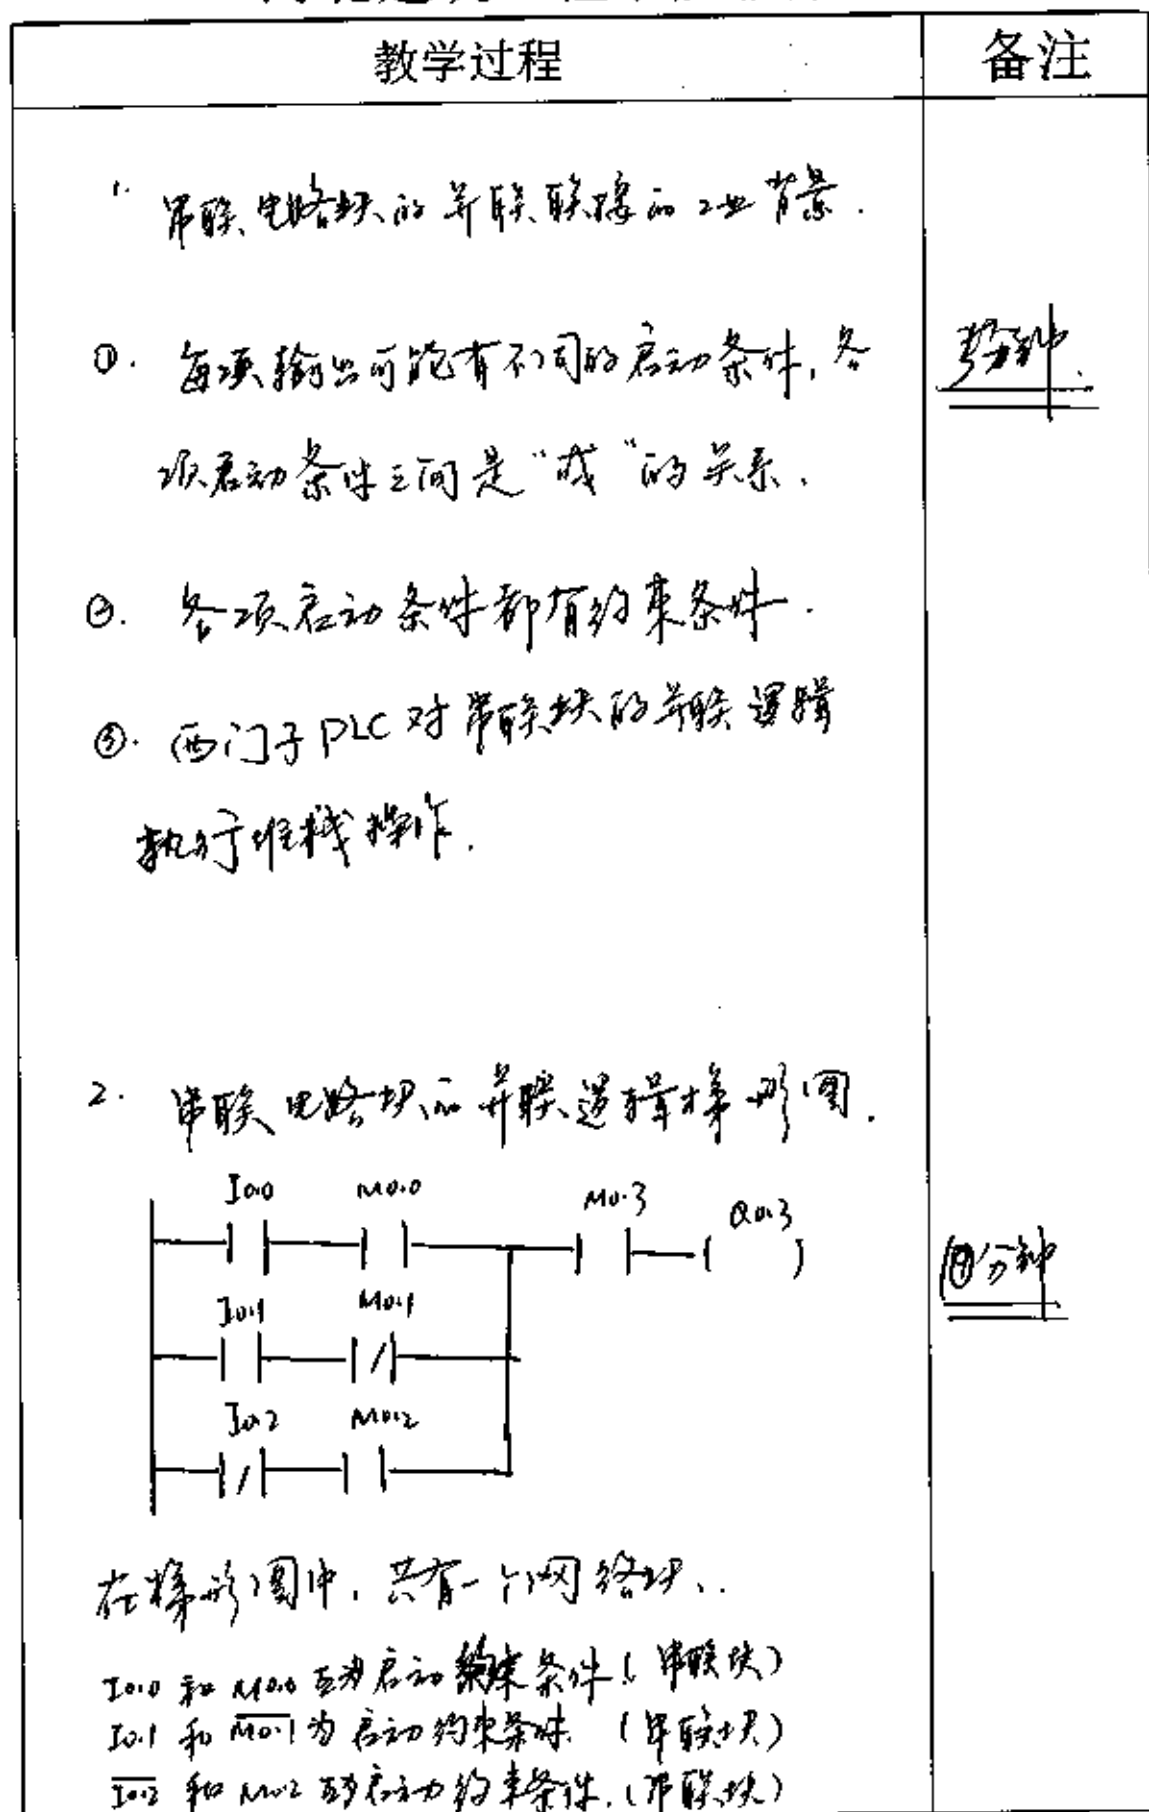 教学过程 备注
1. 串联电路块的并联联接的工业背景.
①. 每项输出可能有不同的启动条件, 各
项启动条件之间是“或”的关系.
分钟.
②. 各项启动条件都有约束条件.
③. 西门子PLC对串联块的并联逻辑
执行堆栈操作.
2. 串联电路块的并联逻辑梯形图.
I0.0 M0.0 M0.3 Q0.3
I0.1 M0.1
I0.2 M0.2
分钟
在梯形图中, 共有一个网络块.
I0.0 和 M0.0 互为启动约束条件 (串联块)
I0.1 和 M0.1 为启动约束条件. (串联块)
I0.2 和 M0.2 互为启动约束条件. (串联块)